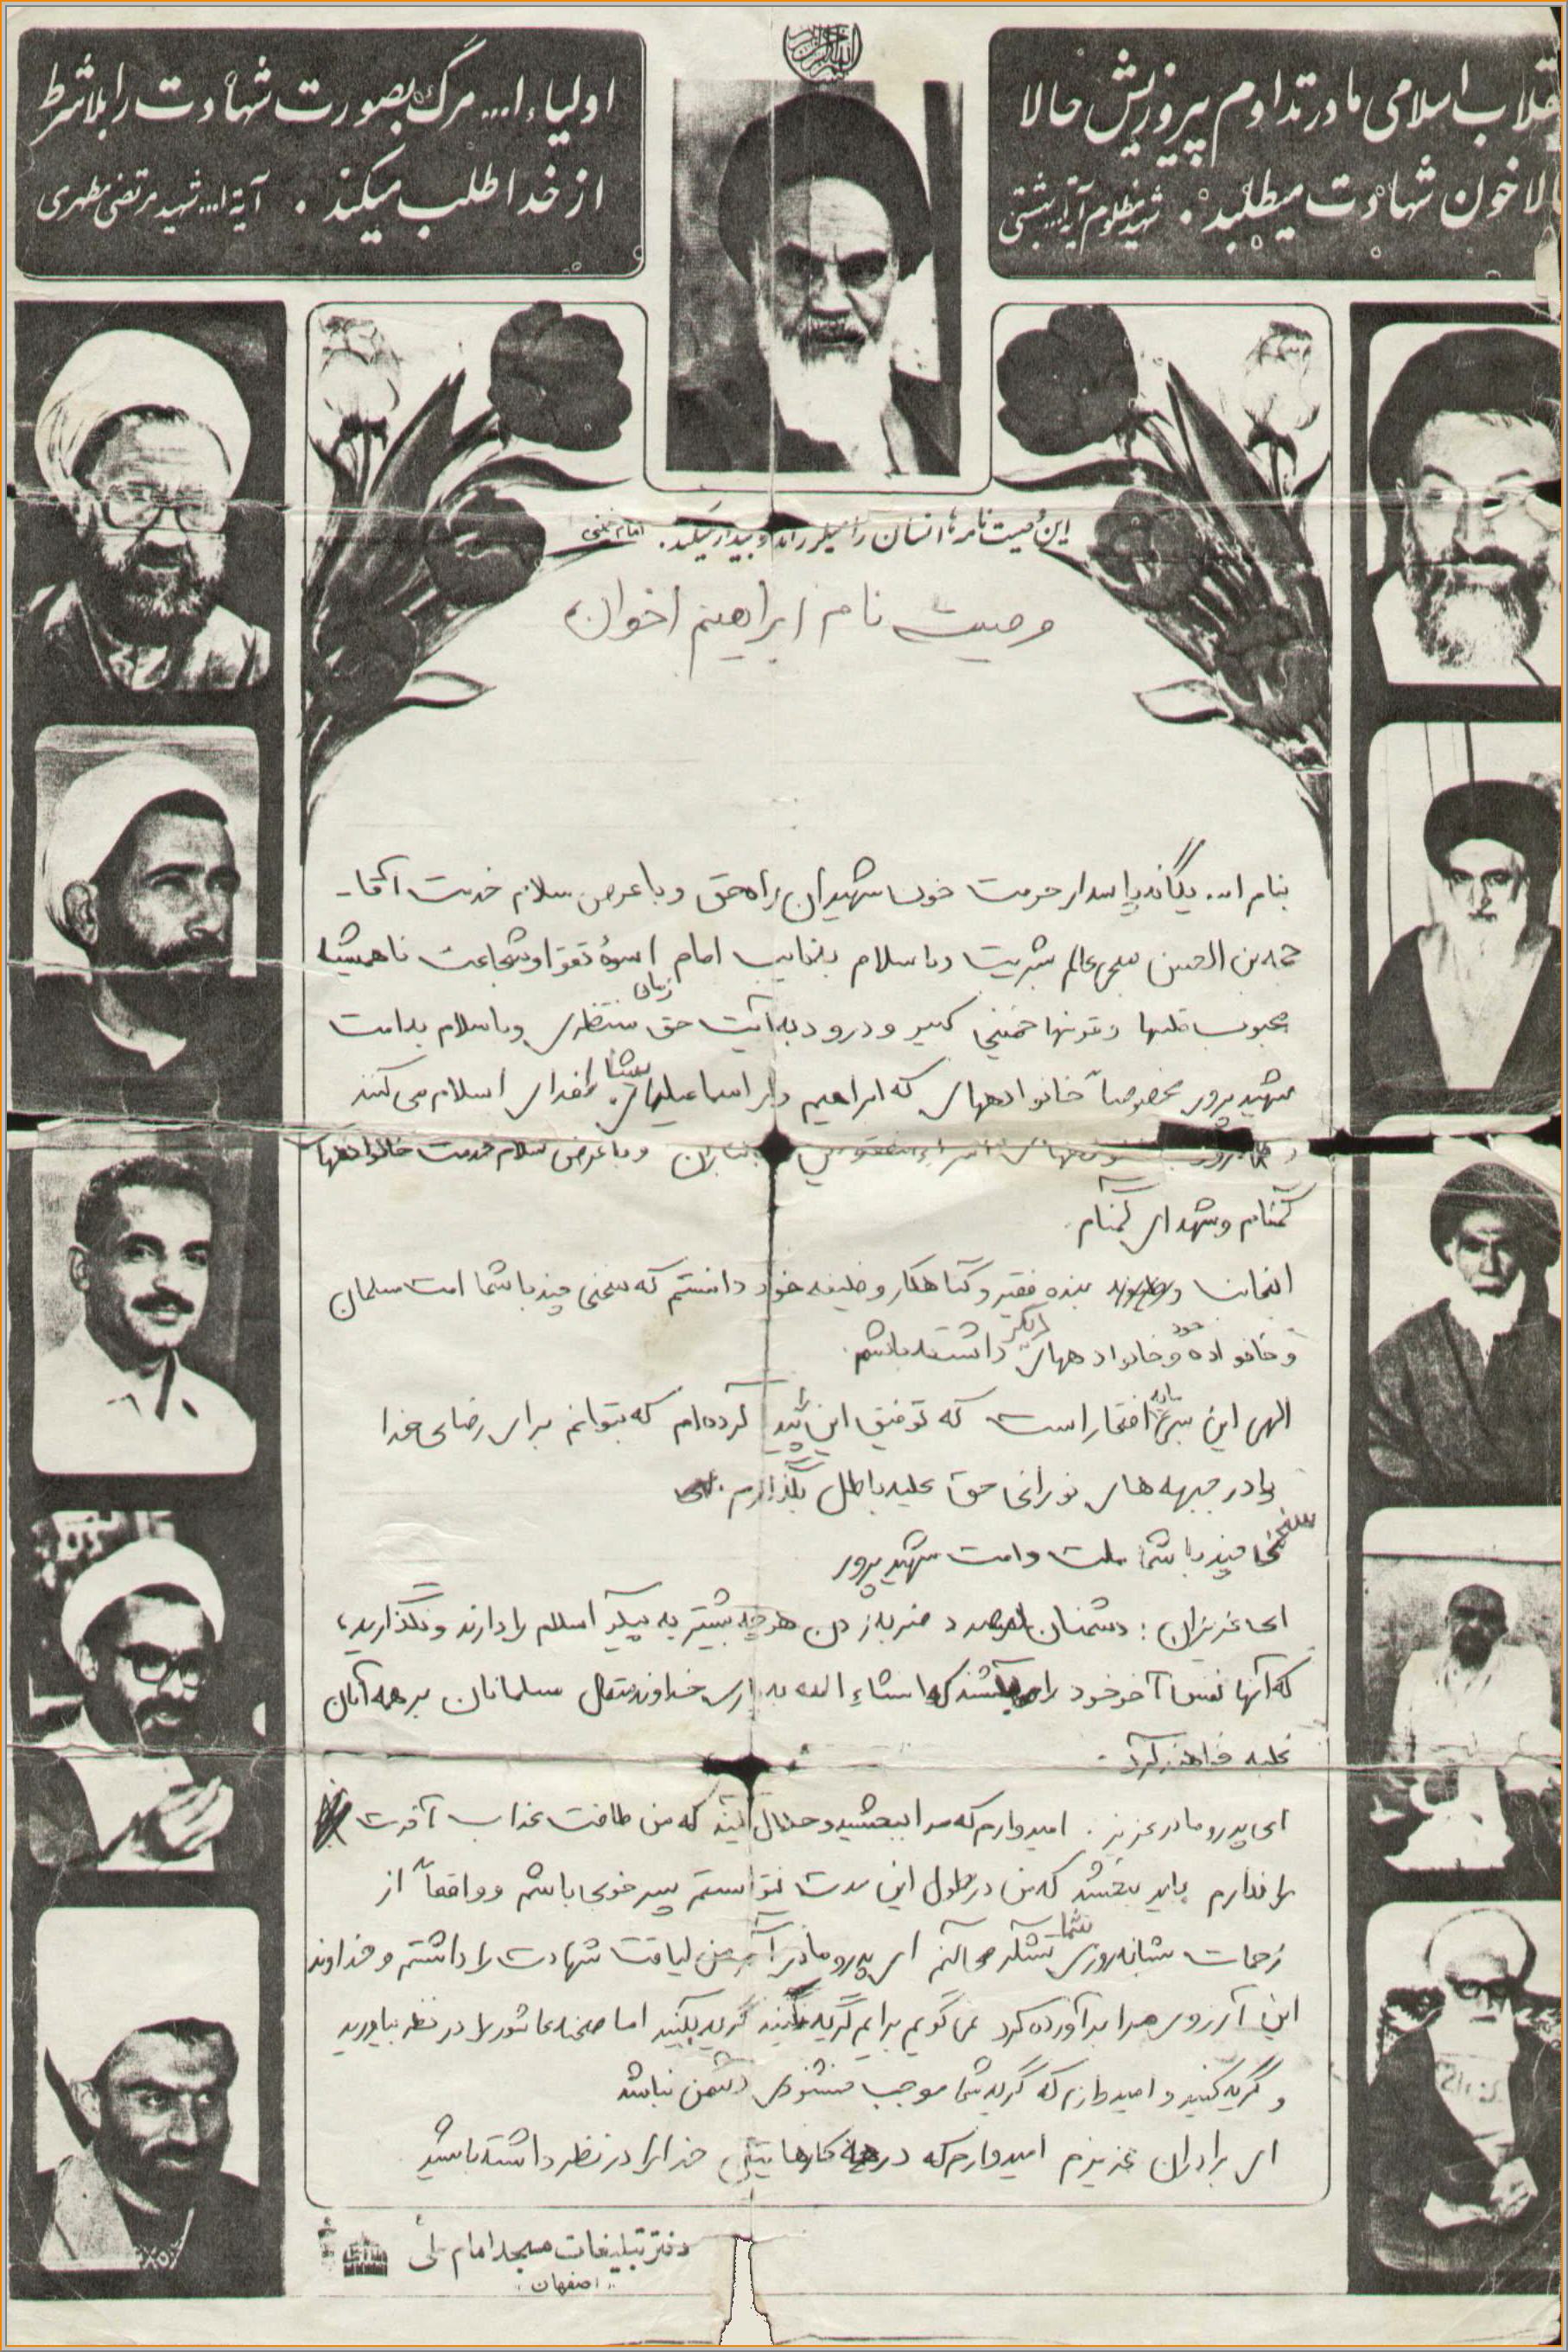 انقلاب اسلامی ما در تداوم پیروزیش حالا
حالا خون شهادت میطلبد. شهید مظلوم آیة ا... بهشتی
اولیاء ا... مرگ بصورت شهادت را بلاشرط
از خدا طلب میکنند. آیة ا... شهید مرتضی مطهری
این وصیت نامه‌ها انسان را میلرزاند و بیدار میکند. امام خمینی
وصیت نامه ابراهیم اخوان
بنام ا... یگانه پاسدار حرمت خون شهیدان راه حق و با عرض سلام خدمت آقا
حجه بن الحسن منجی عالم بشریت و با سلام بنایب امام اسوهٔ تقوا و شجاعت تا همیشه
محبوب قلبها خمینی کبیر و درود به آیت حق منتظری و با سلام به امت
شهید پرور مخصوصاً خانوادههای که ابراهیم وار اسماعیلهایشان را فدای اسلام می کنند
و با عرض سلام خدمت خانوادههای
گمنام و شهدای گمنام.
بنده فقیر و گناهکار وظیفه خود دانستم که سخنی چند با شما امت مسلمان
و خانواده خود و خانوادههای دیگر داشته باشم.
الهی این مایه افتخار است که توفیق این را پیدا کرده‌ام که بتوانم برای رضای خدا
پا در جبهه های نورانی حق علیه باطل بگذارم.
سخنی چند با شما ملت و امت شهید پرور
ای عزیزان: دشمنان درصدد ضربه زدن هرچه بیشتر به پیکر اسلام را دارند و نگذارید،
که آنها نفس آخر خود را بکشند که انشاء الله به یاری خداوند متعال مسلمانان بر همه آنان
غلبه خواهند کرد.
ای پدر و مادر عزیز. امیدوارم که مرا ببخشید و حلال کنید که من طاقت عذاب آخرت
را ندارم باید ببخشید که من در طول این مدت نتوانستم پسر خوبی باشم و واقعاً از
زحمات شبانه‌روزی شما تشکر میکنم ای پدر و مادر اگر من لیاقت شهادت را داشتم و خداوند
این آرزوی مرا برآورده کرد نمی گویم برایم گریه نکنید گریه بکنید اما صحنه عاشورا را در نظر بیاورید
و گریه کنید و امیدوارم که گریه شما موجب خشنودی دشمن نباشد
ای برادران عزیزم امیدوارم که در همه کارهایتان خدا را در نظر داشته باشید
دفتر تبلیغات مسجد امام علی
"اصفهان"